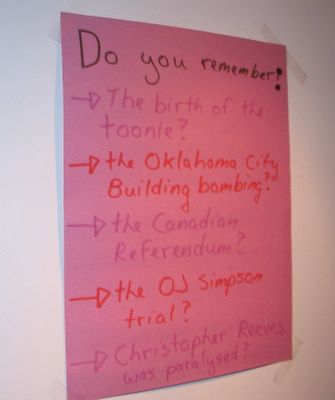 Do you remember?
→ The birth of the
toonie?
→ the Oklahoma City
Building bombing?
→ the Canadian
Referendum?
→ the OJ Simpson
trial?
→ Christopher Reeves
was paralysed?